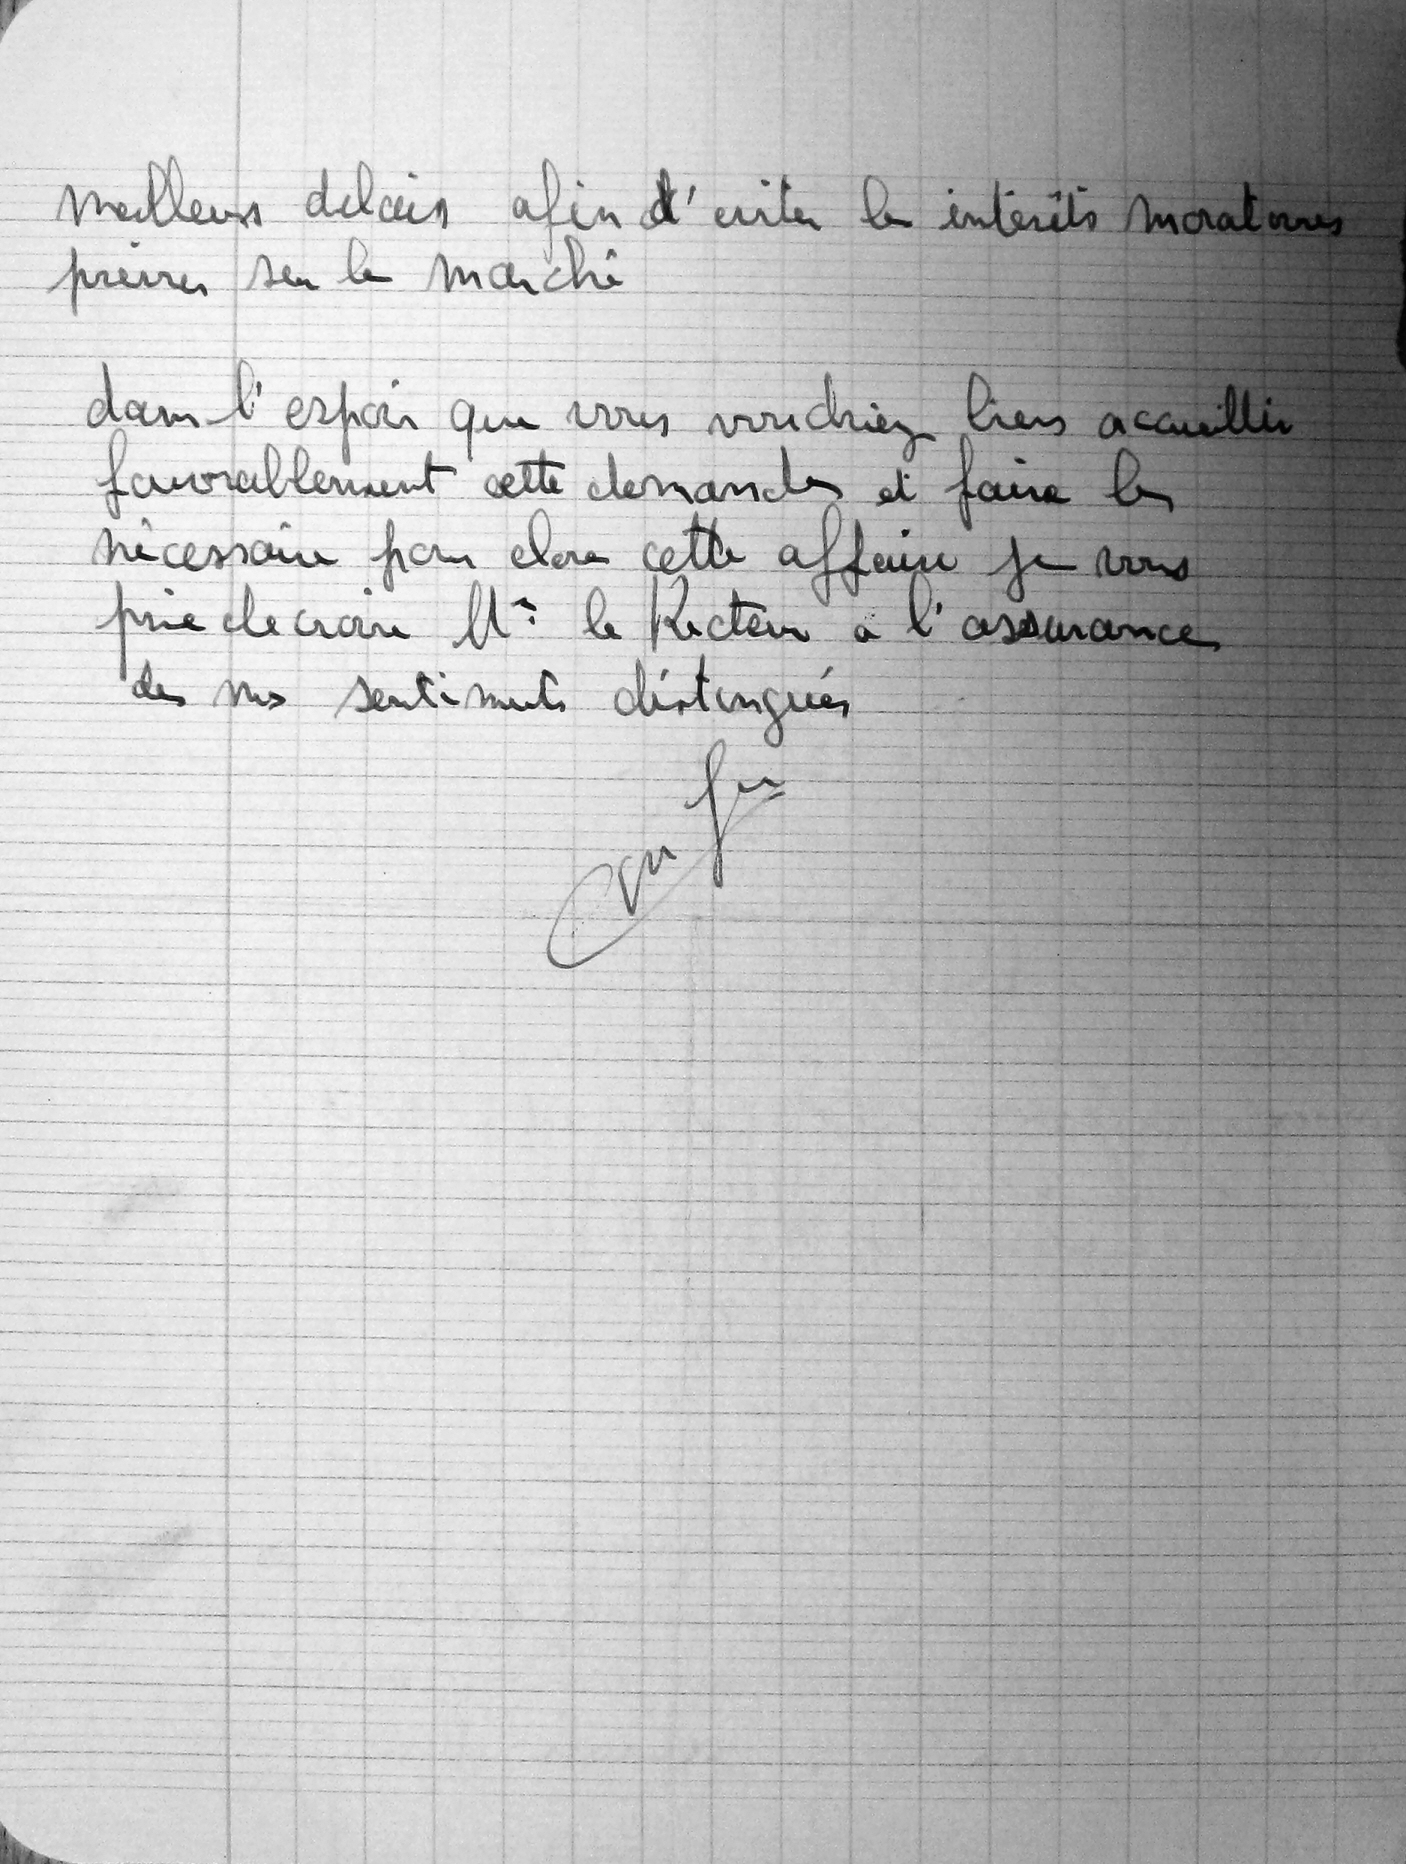 meilleurs delais afin d'eviter les intérêts moratoires
prévues sur le marché
dans l'espoir que vous voudriez biens accueillir
favorablement cette demande et faire le
nécessaire pour clore cette affaire je vous
prie de croire Mr le Recteur a l'assurance
de nos sentiments distingués